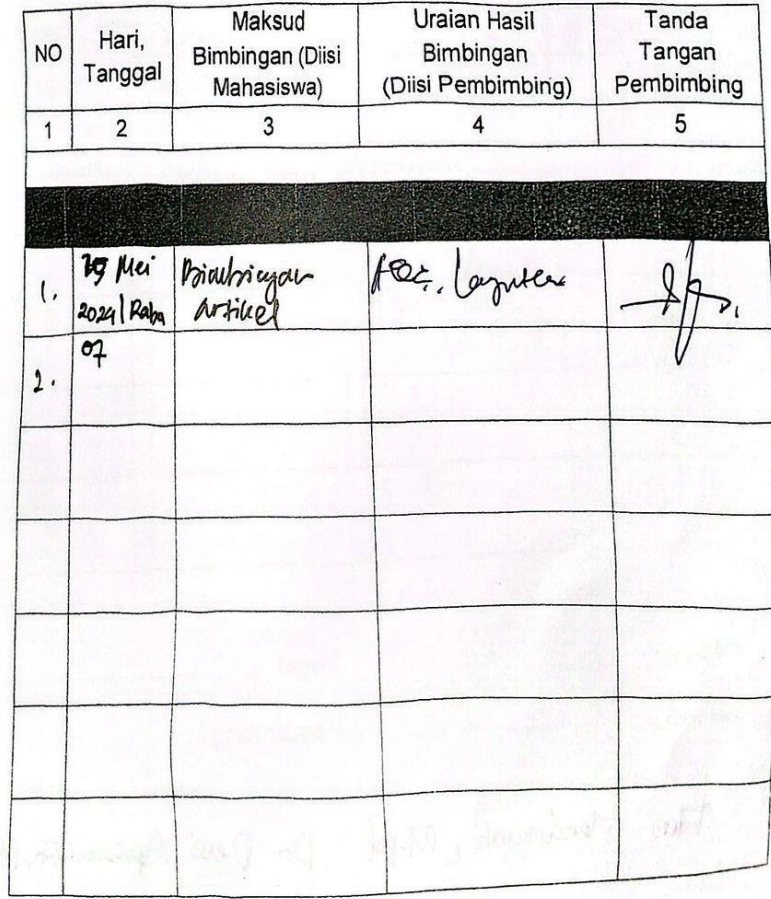 NO
Hari,
Tanggal
Maksud
Bimbingan (Diisi
Mahasiswa)
Uraian Hasil
Bimbingan
(Diisi Pembimbing)
Tanda
Tangan
Pembimbing
1 2 3 4 5
1.
Mei
2024 | Rabu
Bimbingan
artikel
2.
07